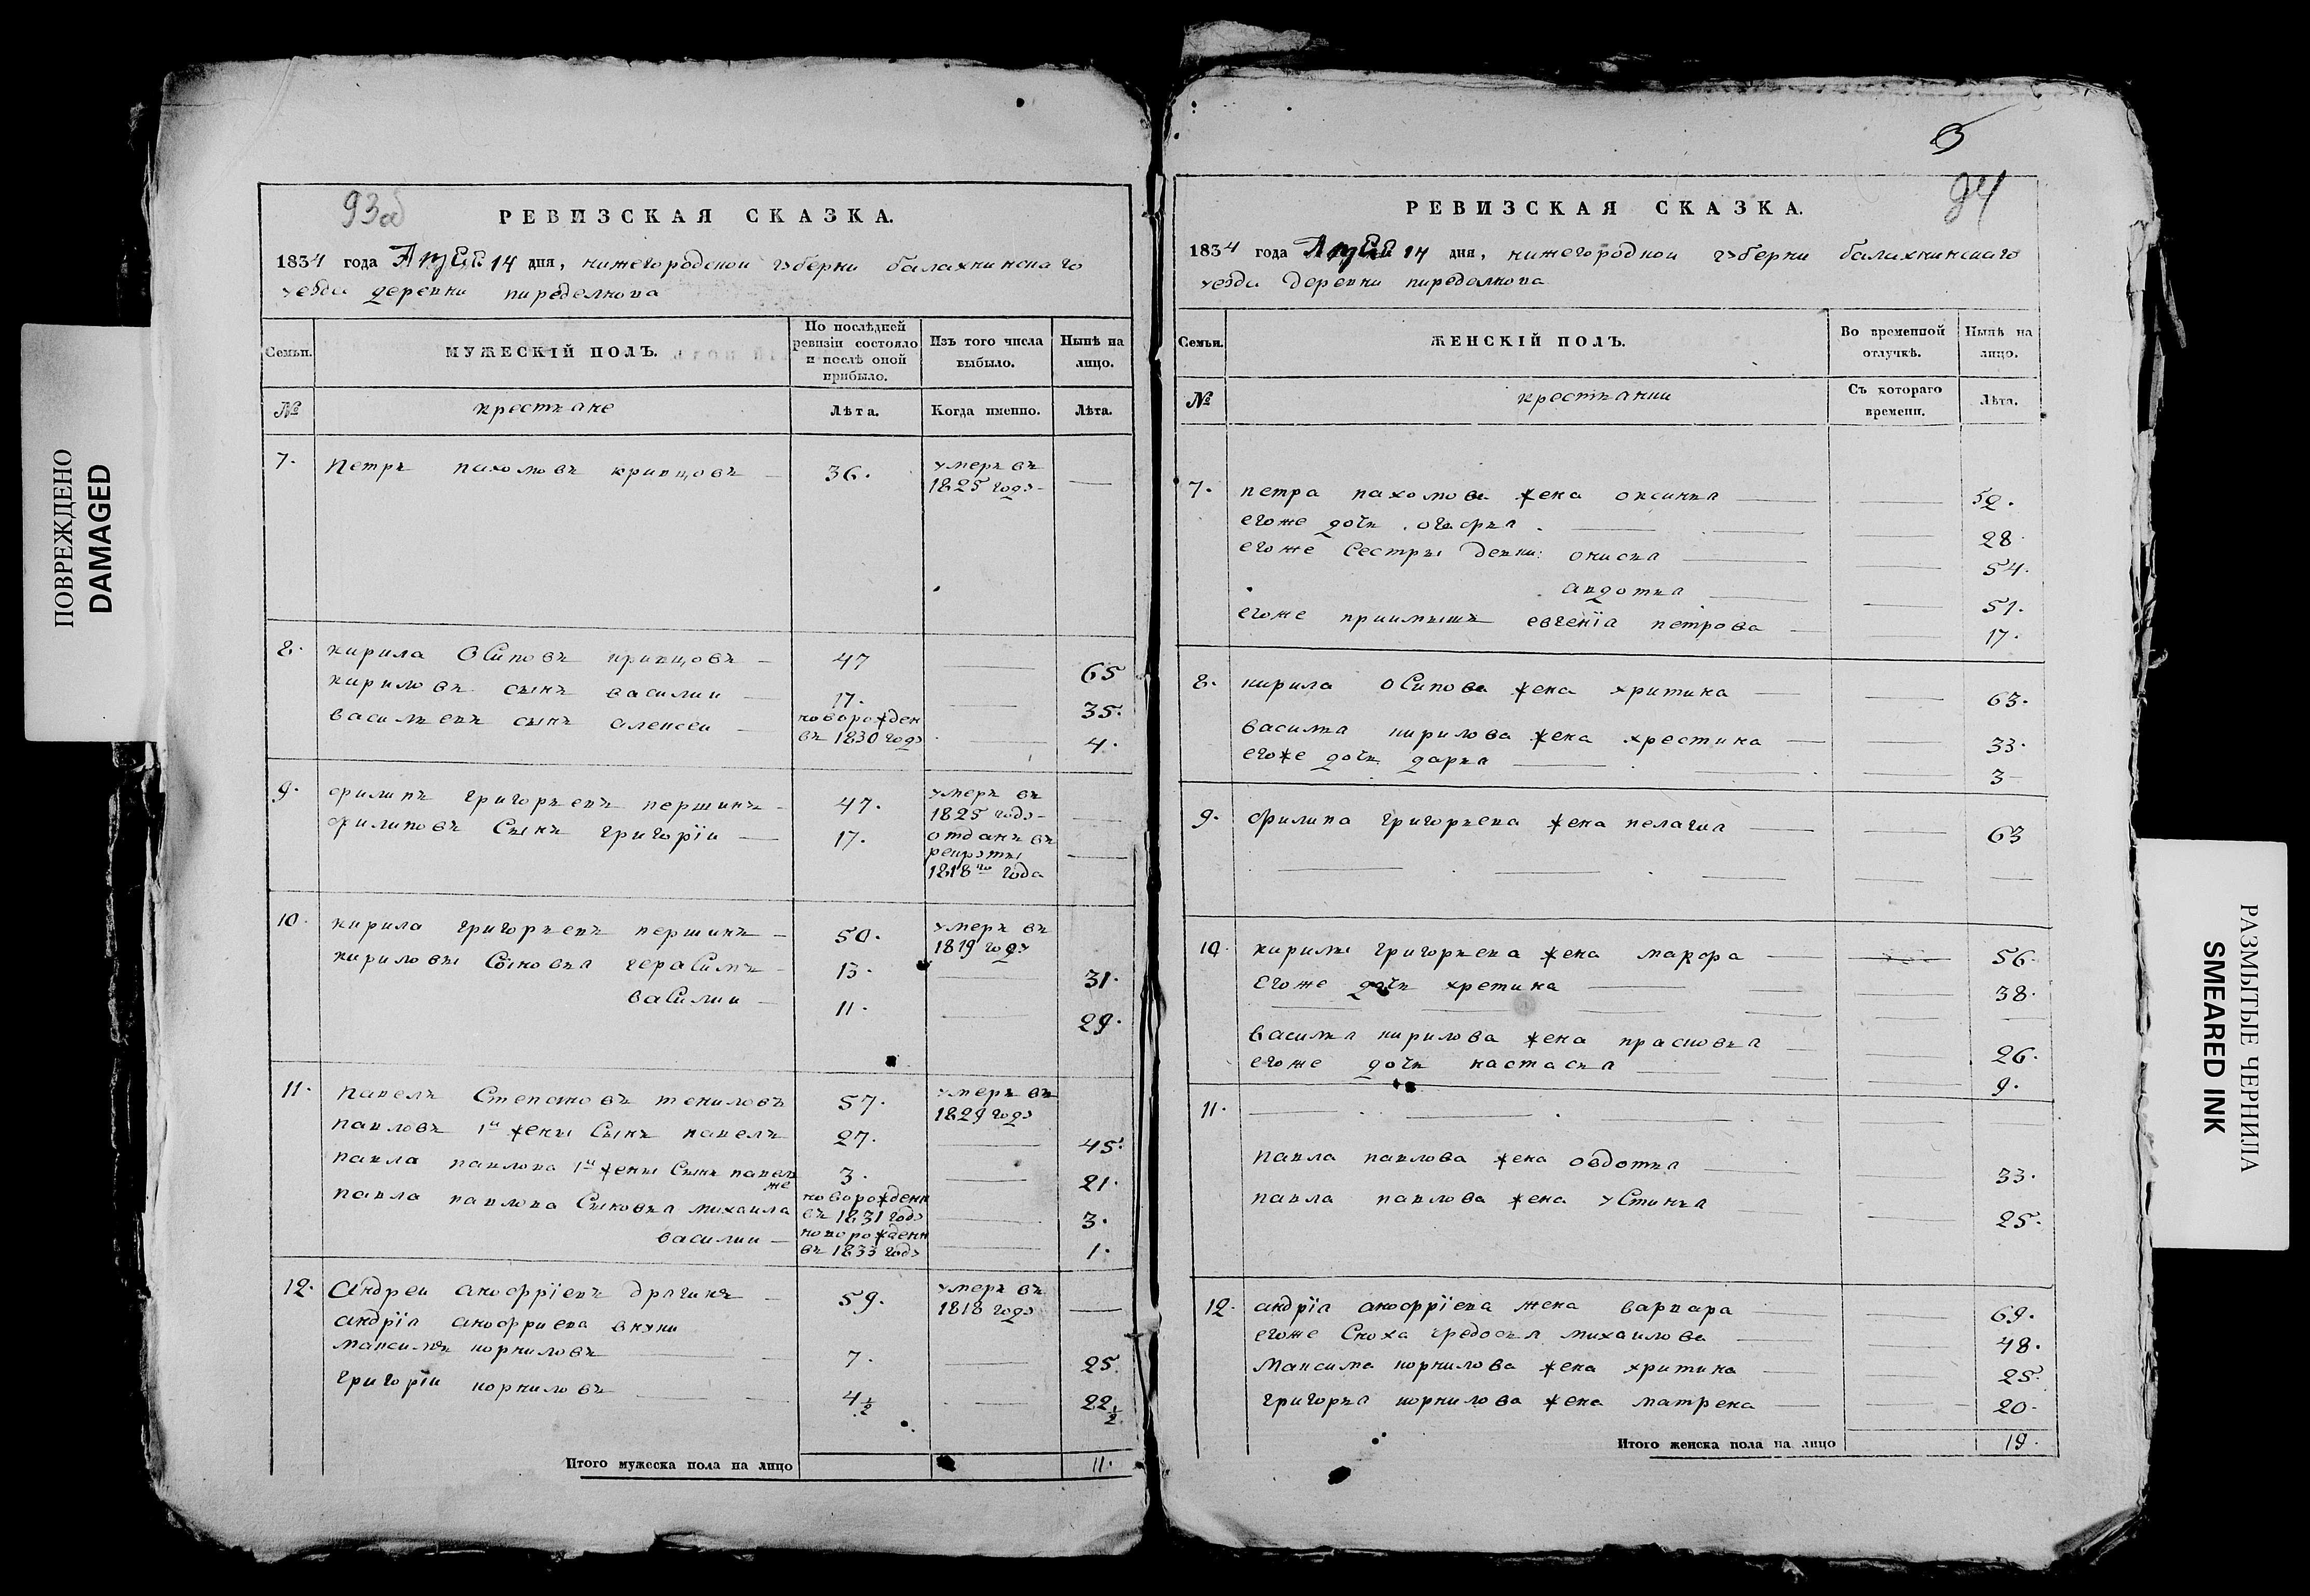 ПОВРЕЖДЕНО
DAMAGED
93об
РЕВИЗСКАЯ СКАЗКА.
1834 года 14 дня, нижегородской губерни балахнинскаго
уезда деревни пиределкова
Семьи. МУЖЕСКІЙ ПОЛЪ. По послѣдней ревизіи состояло и послѣ оной прибыло. Изъ того числа выбыло. Нынѣ на лицо.
№ крестьяне Лѣта. Когда именно. Лѣта.
7. Петръ пахомовъ кривцовъ 36. умеръ въ 1825 году —
8. кирила Осиповъ кривцовъ — 47 — 65
кириловъ сынъ василии — 17. — 35.
васильевъ сынъ алексеи — новорожден въ 1830 году — 4.
9. филипъ григорьевъ першинъ — 47. умеръ въ 1825 году — —
филиповъ Сынъ григорїи — 17. отданъ въ рекруты 1818го года —
10. кирила григорьевъ першинъ — 50. умеръ въ 1819 году
кириловы Сыновья герасимъ — 13. — 31.
василии — 11. — 29.
11. павелъ Степановъ тениловъ 57. умеръ въ 1829 году
павловъ 1й жены Сынъ павелъ 27. — 45.
павла павлова 1й жены Сынъ павелъ же 3. — 21.
павла павлова Сыновья михаила новорожденн въ 1831 году — 3.
василии — новорожденн въ 1833 году — 1.
12. Андреи анофрїевъ драгинъ — 59. умеръ въ 1818 году —
андрїя анофриева внуки
максимъ корниловъ — 7. — 25.
григорїи корниловъ — 4½ — 22½
Итого мужеска пола на лицо 11.
94
РЕВИЗСКАЯ СКАЗКА.
1834 года 14 дня, нижегородкои губерни балахнинскаго
уезда деревни пиределкова
Семьи. ЖЕНСКІЙ ПОЛЪ. Во временной отлучкѣ. Нынѣ на лицо.
№ крестьянки Съ котораго времени. Лѣта.
7. петра пахомова жена оксинья — — 52.
егоже дочь — — 28.
егоже Сестры девки: онисья — — 54.
авдотья — — 51.
егоже приимышъ евгенїа петрова — — 17.
8. кирила Осипова жена хритина — — 63.
василья кирилова жена хрестина — — 33.
егоже дочь дарья — — 3
9. филипа григорьева жена пелагия — — 63
10. кирилы григорьева жена марфа — — 56.
егоже дочь хретина — — 38.
василья кирилова жена прасковья — — 26.
егоже дочь настасья — — 9.
11. —
павла павлова жена овдотья — — 33.
павла павлова жена устинья — — 25.
12. андрїя анофрїева жена варвара — — 69.
егоже Сноха федосья михаилова — — 48.
максима корнилова жена хритина — — 25.
григорья корнилова жена матрена — — 20.
Итого женска пола на лицо 19.
РАЗМЫТЫЕ ЧЕРНИЛА
SMEARED INK